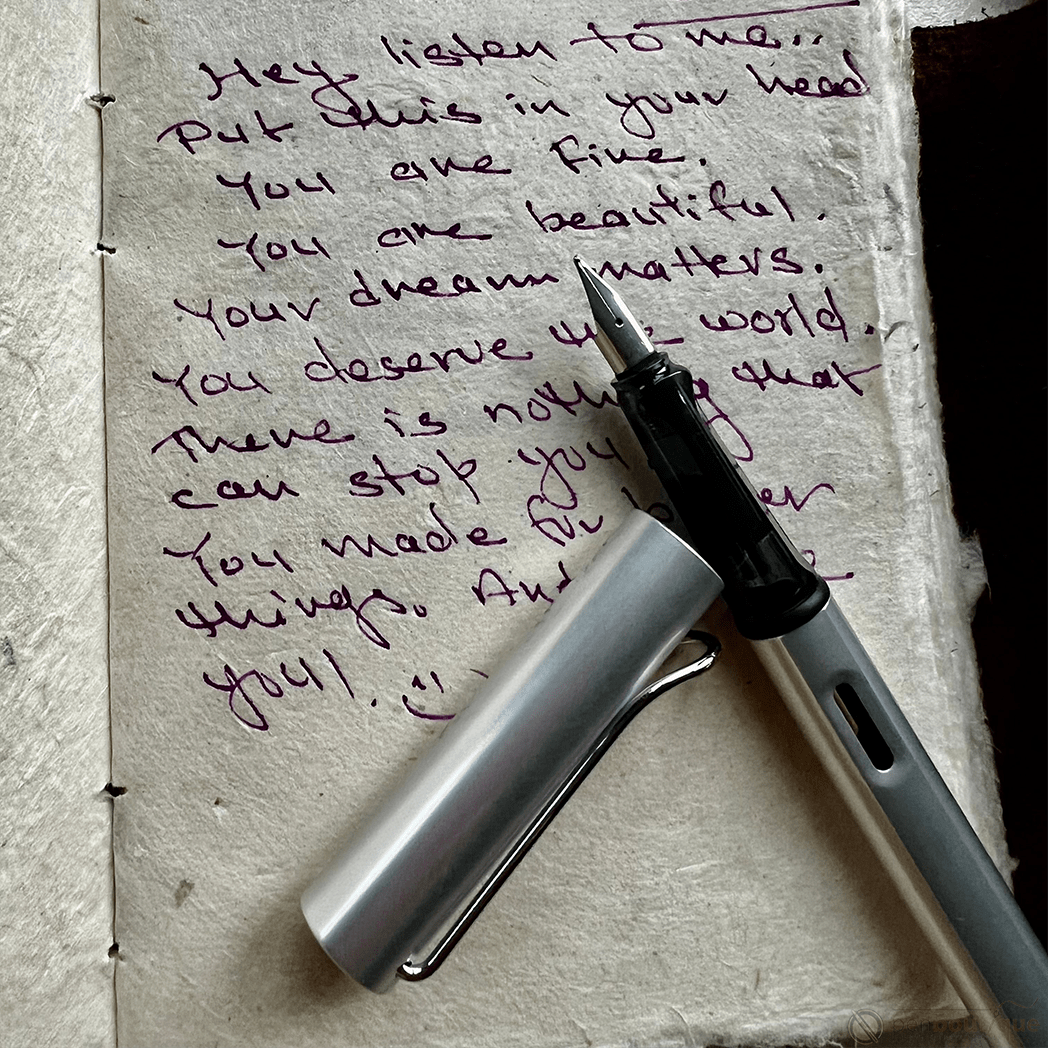 Hey listen to me..
Put this in your head
You are fine.
You are beautiful.
Your dream matters.
You deserve the world.
There is nothing that
can stop you
You made for
things. And
you!.